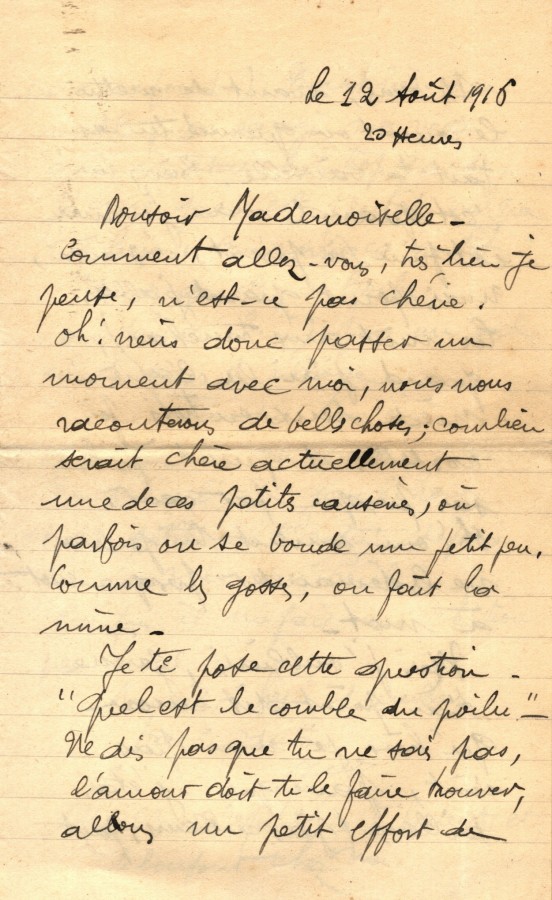 Le 12 Août 1916
20 Heures
Bonsoir Mademoiselle -
Comment allez-vous, très bien je
pense, n'est-ce pas chérie.
Oh! viens donc passer un
moment avec moi, nous nous
raconterons de belles choses; combien
serait chère actuellement
une de ces petites causeries, où
parfois on se boude un petit peu.
Comme les gosses, on fait la
mine -
Je te pose cette question -
"Quel est le comble du poilu" -
Ne dis pas que tu ne sais pas,
l'amour doit te le faire trouver,
allons un petit effort de